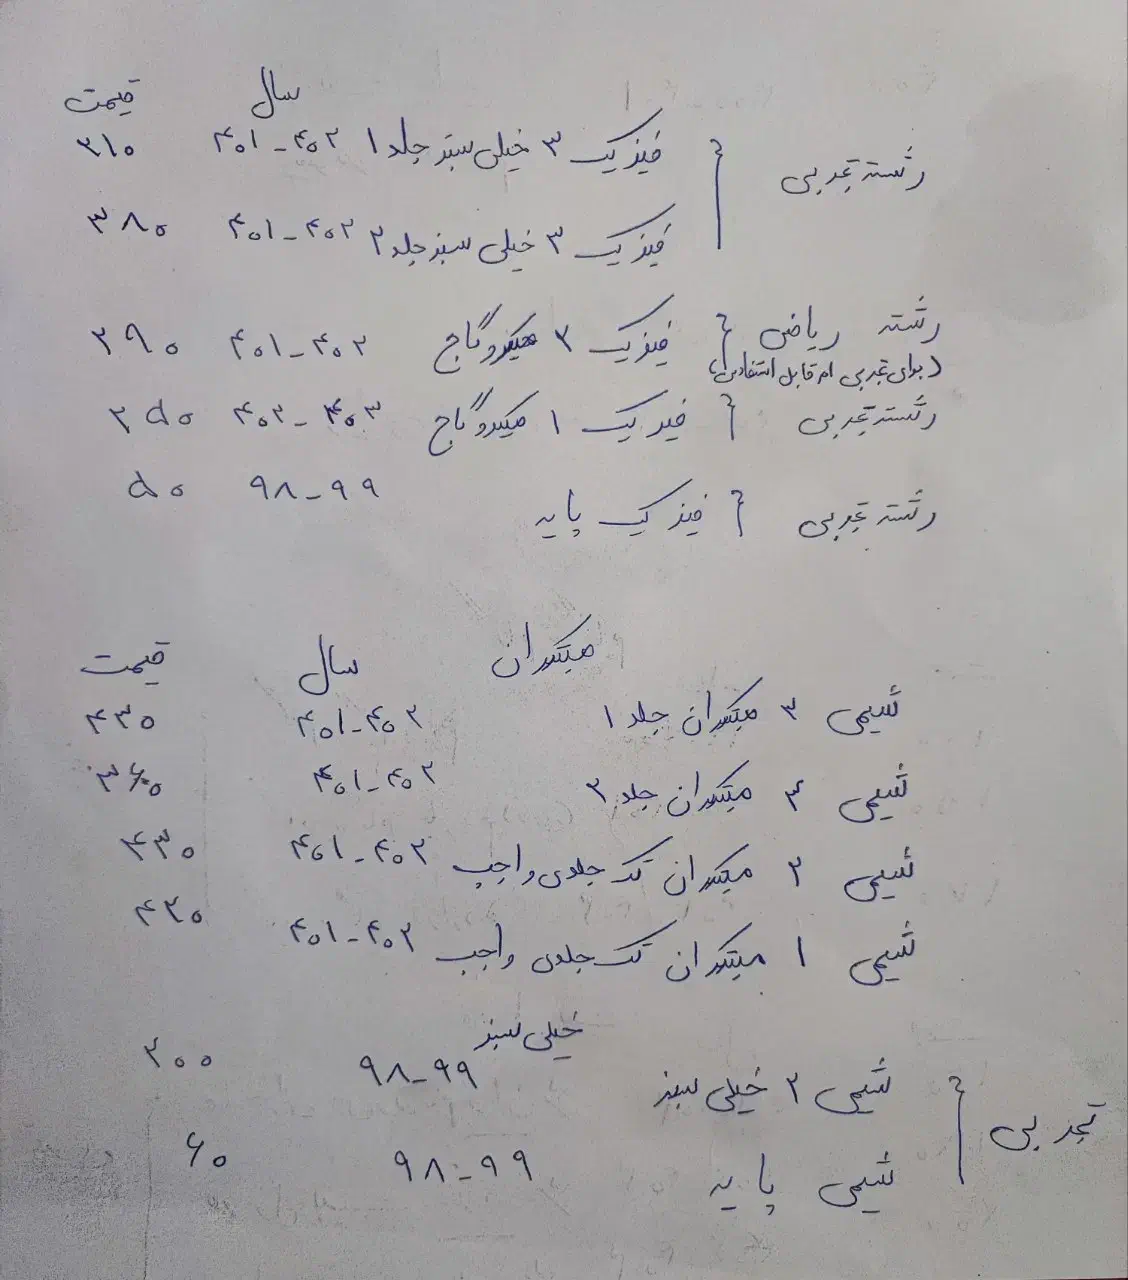 سال قیمت
رشته تجربی { فیزیک ۳ خیلی سبز جلد ۱ ۴۰۱-۴۰۲ ۳۱۰
فیزیک ۳ خیلی سبز جلد ۲ ۴۰۱-۴۰۲ ۳۸۰
رشته ریاضی { فیزیک ۲ میکرو گاج ۴۰۱-۴۰۲ ۲۹۰
(برای تجربی ام قابل استفادس)
رشته تجربی { فیزیک ۱ میکرو گاج ۴۰۲-۴۰۳ ۲۵۰
رشته تجربی { فیزیک پایه ۹۸-۹۹ ۵۰
مبتکران سال قیمت
شیمی ۳ مبتکران جلد ۱ ۴۰۱-۴۰۲ ۴۳۵
شیمی ۳ مبتکران جلد ۲ ۴۰۱-۴۰۲ ۳۶۵
شیمی ۲ مبتکران تک جلدی واجب ۴۰۱-۴۰۲ ۴۳۰
شیمی ۱ مبتکران تک جلدی واجب ۴۰۱-۴۰۲ ۴۲۵
خیلی سبز
تجربی { شیمی ۲ خیلی سبز ۹۸-۹۹ ۲۰۰
شیمی پایه ۹۸-۹۹ ۶۰